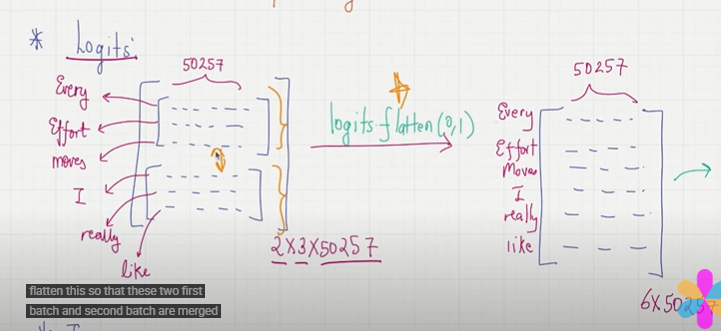 * Logits:
50257
Every
Effort
moves
I
really
like
2x3x50257
logits.flatten(0,1)
50257
Every
Effort
Moves
I
really
like
6x50257
flatten this so that these two first
batch and second batch are merged